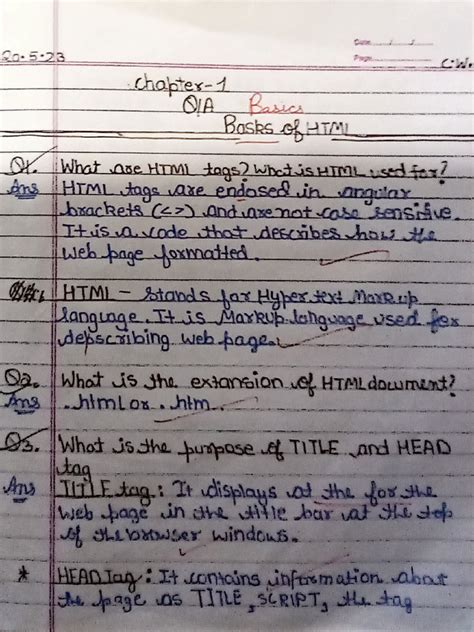 Date / /
Page
20.5.23 C.W.
Chapter-1
Q/A Basics
Basks of HTML
Q1. What are HTML tags? What is HTML used for?
Ans HTML tags are endosed in angular
brackets (<>) and are not case sensitive.
It is a code that describes how the
web page formatted.
HTML - Stands for Hyper text Markup
language. It is Markup language used for
depscribing web page.
Q2. What is the extansion of HTML document?
Ans .html or .htm.
Q3. What is the purpose of TITLE and HEAD
tag
Ans TITLE tag : It displays at the for the
web page in the title bar at the top
of the browser windows.
* HEAD Tag : It contains information about
the page as TITLE, SCRIPT, the tag